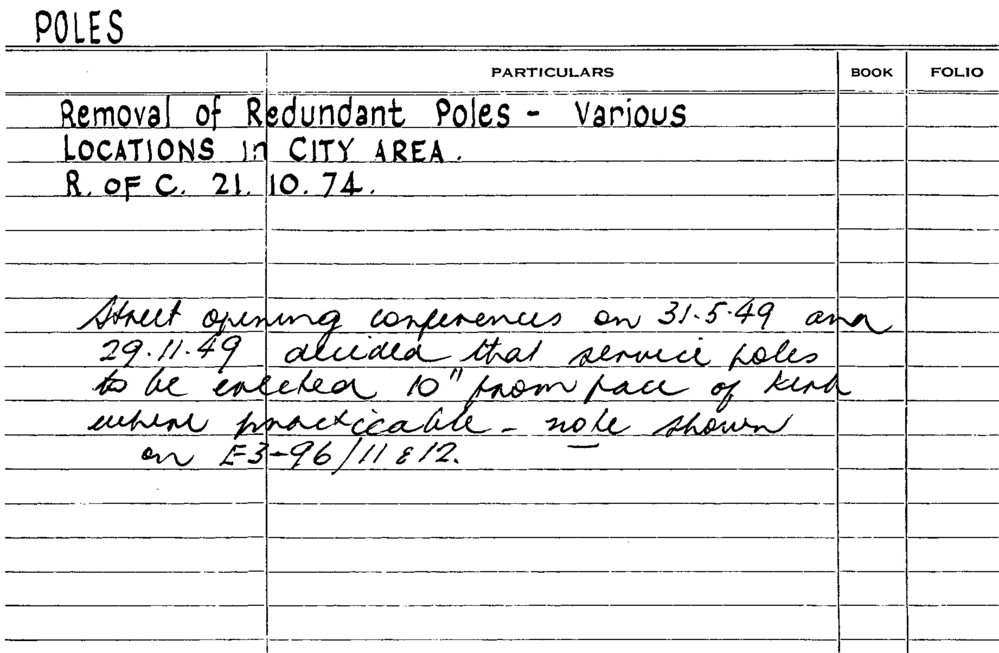 POLES
PARTICULARS BOOK FOLIO
Removal of Redundant Poles - Various
LOCATIONS in CITY AREA.
R. OF C. 21. 10. 74.
Street opening conferences on 31.5.49 and
29.11.49 decided that service poles
to be erected 10" from face of kerb
where practicable - note shown
on E3-96/11 & 12.